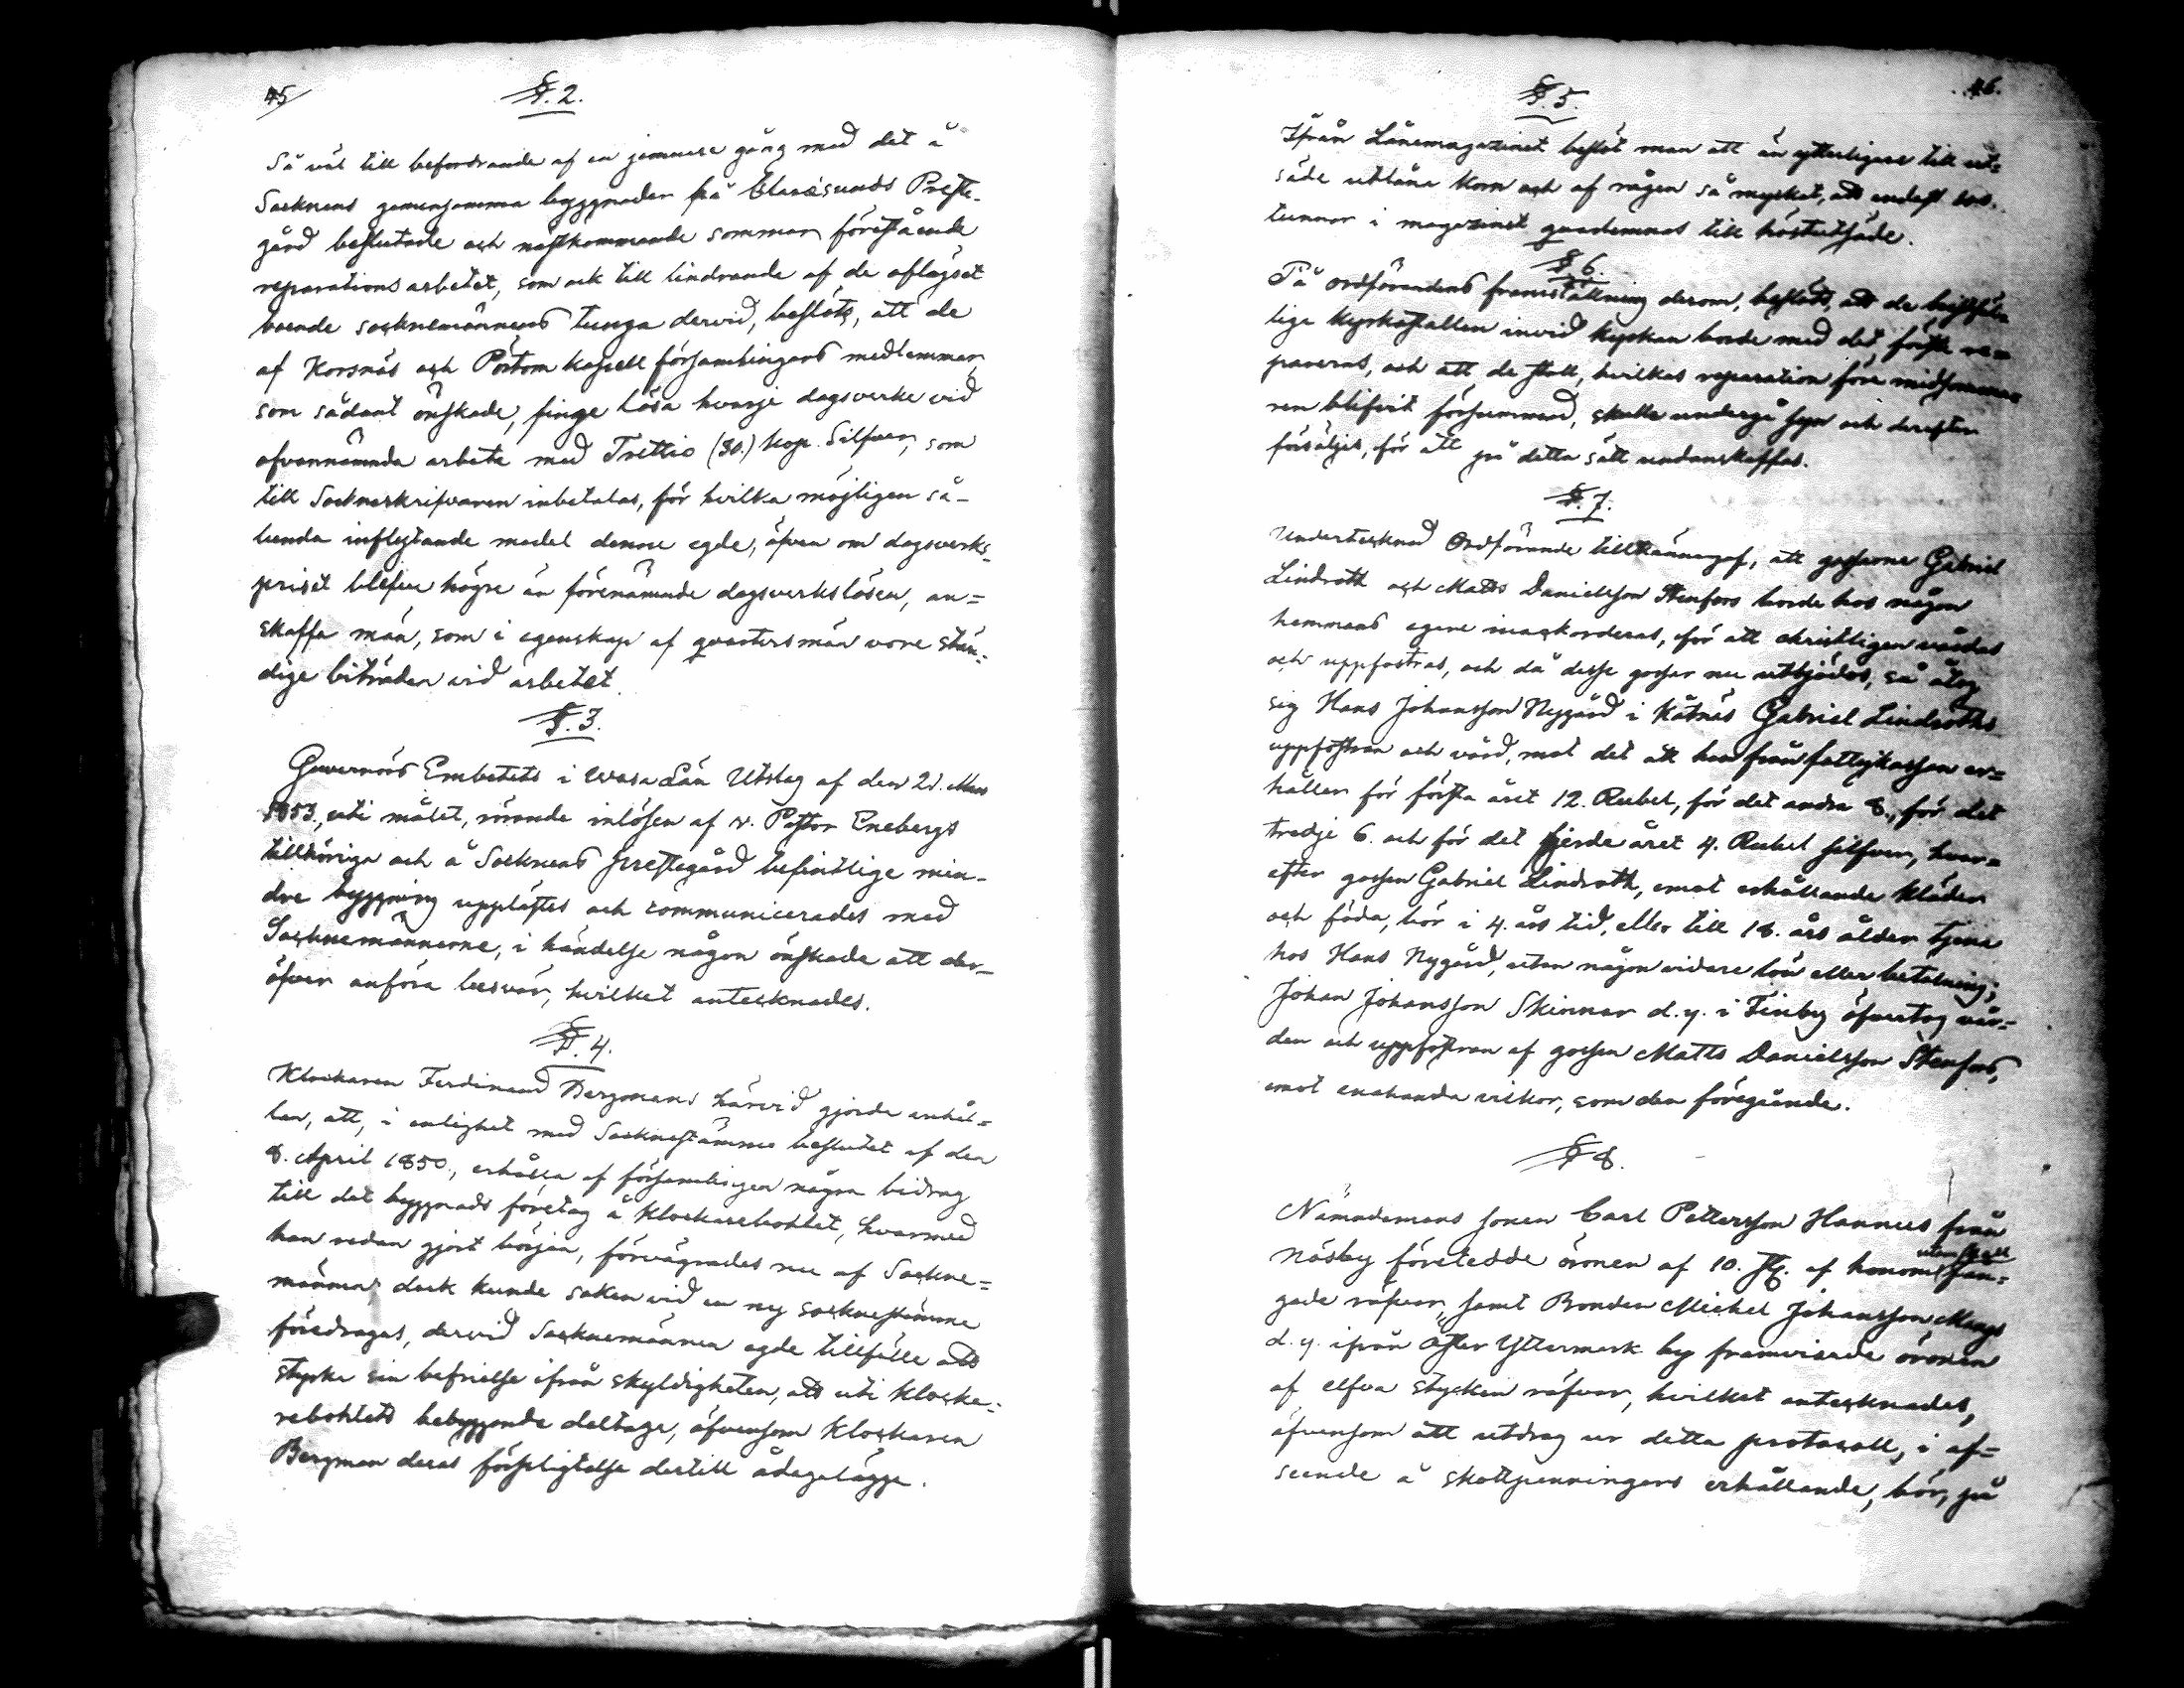 45
§. 2.
Så väl till befordrande af en jemnare gång med det å
Socknens gemensamma byggnader på Prestegård
gård beslutade och nästkommande sommar förestående
reparations arbetet, som ock till lindrande af de aflägset
boende socknemännens tunga dervid, beslöts, att de
af Korsnäs och Pörtom kapell församlingars medlemmar,
som sådant önskade, finge lösa hvarje dagsverke vid
ofvannämnda arbete med Trettio (30.) kop. Silfver, som
till Socknskrifvaren inbetalas, för hvilka möjligen så-
lunda inflytande medel denne egde, äfven om dagsverks-
priset blefve högre än förenämnde dagsverkslösen, an=
skaffa män, som i egenskap af qvartersmän vore stän-
dige biträden vid arbetet.
§. 3.
Guvernörs Embetets i Wasa Län Utslag af den 21. Mars
1853., uti målet, rörande inlösen af v. Pastor Enebergs
tillhöriga och å Socknens prestegård befintlige min-
dre byggning upplästes och communicerades med
Socknemännerne, i händelse någon önskade att der-
öfver anföra besvär, hvilket antecknades.
§. 4.
Klockaren Ferdinand Bergmans härvid gjorde anhål=
lan, att, i enlighet med Socknestämmo beslutet af den
8. April 1850., erhålla af församlingen några bidrag
till det byggnads företag å Klockarebohlet, hvarmed
han redan gjort början, förvägrades nu af Sockne=
männen; dock kunde saken vid en ny socknestämma
föredragas, dervid Socknemännen egde tillfälle att
styrka sin befrielse ifrån skyldigheten, att uti klocka-
rebohlets bebyggande deltaga, äfvensom Klockaren
Bergman deras förpligtelse dertill ådagalägga.
46.
§. 5.
Ifrån Lånemagazinet beslöt man att än ytterligare till ut=
säde utlåna Korn och af rågen så mycket, att endast 100.
tunnor i magazinet qvarlemnas till höstutsäde.
§ 6.
På ordförandens framställning derom, beslöts, att de
lige kyrkostallen invid kyrkan borde med det första re=
pareras, och att de stall, hvilkas reparation före midsomma-
ren blifvit försummad, skulle undergå syn och derefter
försäljas, för att på detta sätt undanskaffas.
§. 7.
Undertecknad Ordförande tillkännagaf, att gossarne Gabriel
Lindroth och Matts Danielsson Stenfors borde hos någon
hemmans egare inackorderas, för att christligen vårdas
och uppfostras, och då desse gossar nu utbjödos, så åtog
sig Hans Johansson Nygård i Kåtnäs Gabriel Lindroths
uppfostran och vård, mot det att han från fattigkassan er=
håller för första året 12. Rubel, för det andra 8., för det
tredje 6. och för det fjerde året 4. Rubel silfver, hvar=
efter gossen Gabriel Lindroth, emot erhållande kläder
och föda, bör i 4. års tid, eller till 18. års ålder tjena
hos Hans Nygård, utan någon vidare lön eller betalning;
Johan Johansson Skinnar d. y. i Finby öfvertog vår-
den och uppfostran af gossen Matts Danielsson Stenfors,
emot enahanda vilkor, som den föregående.
§ 8.
Nämndemans sonen Carl Pettersson Hannus från
Näsby företedde öronen af 10. st. af honom utan skall fån-
gade räfvar, samt Bonden Mickel Johansson Mangs
d. y. ifrån Öster Yttermark by framviserde öronen
af elfva stycken räfvar, hvilket antecknades,
äfvensom att utdrag ur detta protocoll, i af=
seende å skottpenningars erhållande, bör, på